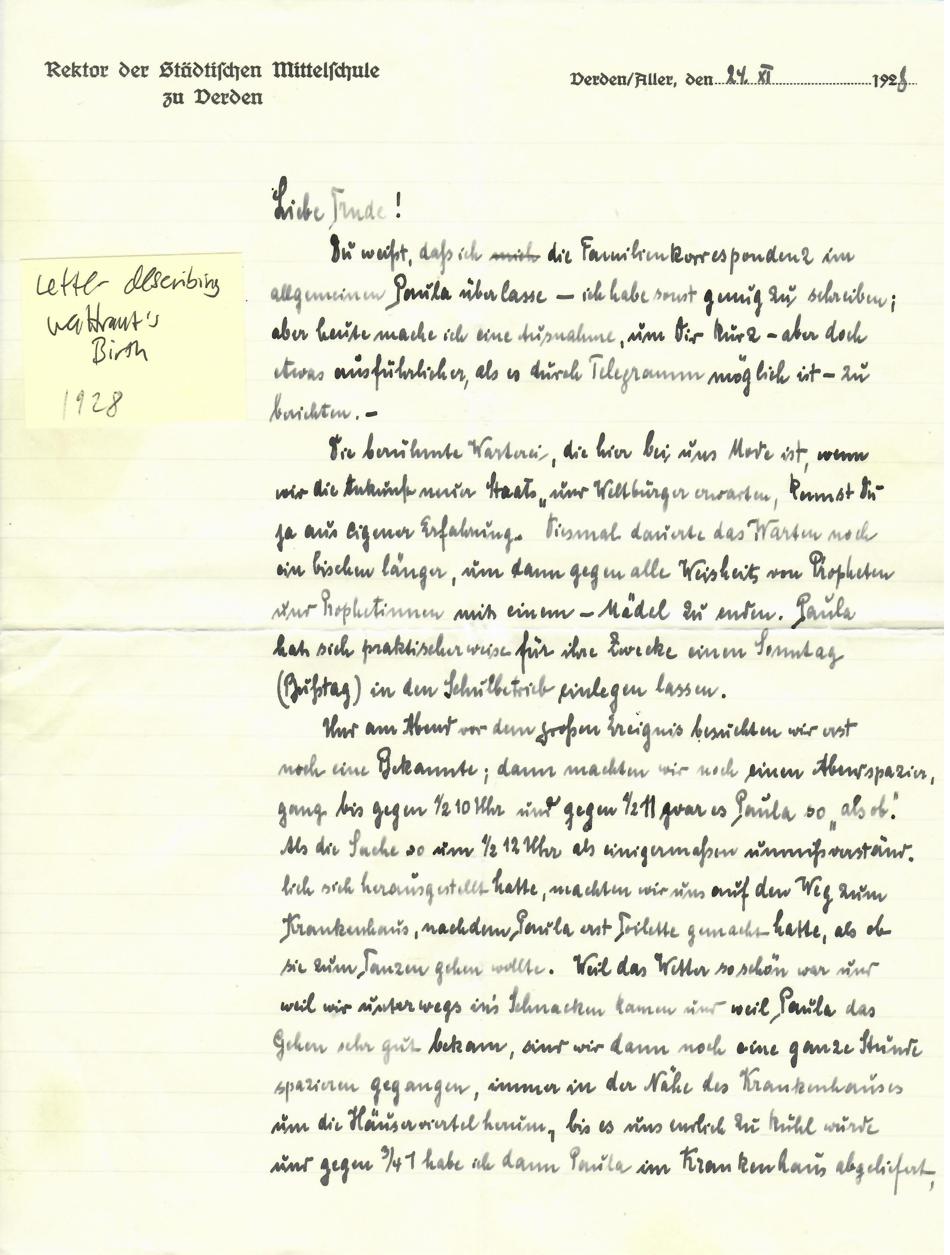 Rektor der Städtischen Mittelschule
zu Verden
Verden/Aller, den 24. XI 1928
Letter describing
Waltraut's
Birth
1928
Liebe Trude!
Du weißt, daß ich mich die Familienkorrespondenz im
allgemeinen Paula überlasse – ich habe sonst genug zu schreiben;
aber heute mache ich eine Ausnahme, um Dir kurz – aber doch
etwas ausführlicher, als es durch Telegramm möglich ist – zu
berichten. –
Die berühmte Warterei, die hier bei uns Mode ist, wenn
wir die Ankunft neuer Staats- und Weltbürger erwarten, kennst Du
ja aus eigener Erfahrung. Diesmal dauerte das Warten noch
ein bischen länger, um dann gegen alle Weisheit von Propheten
und Prophetinnen mit einem – Mädel zu enden. Paula
hat sich praktischerweise für ihre Zwecke einen Sonntag
(Bußtag) in den Schulbetrieb einlegen lassen.
Und am Abend vor dem großen Ereignis besuchten wir erst
noch eine Bekannte; dann machten wir noch einen Abendspazier-
gang bis gegen 1/2 10 Uhr und gegen 1/2 11 war es Paula so „als ob".
Als die Sache so um 1/2 12 Uhr als einigermaßen unmißverständ-
lich sich herausgestellt hatte, machten wir uns auf den Weg zum
Krankenhaus, nachdem Paula erst Toilette gemacht hatte, als ob
sie zum Tanzen gehen wollte. Weil das Wetter so schön war und
weil wir unterwegs in's Schnacken kamen und weil Paula das
Gehen sehr gut bekam, sind wir dann noch eine ganze Stunde
spazieren gegangen, immer in der Nähe des Krankenhauses
um die Häuserviertel herum, bis es uns endlich zu kühl wurde
und gegen 3/4 1 habe ich dann Paula im Krankenhaus abgeliefert,